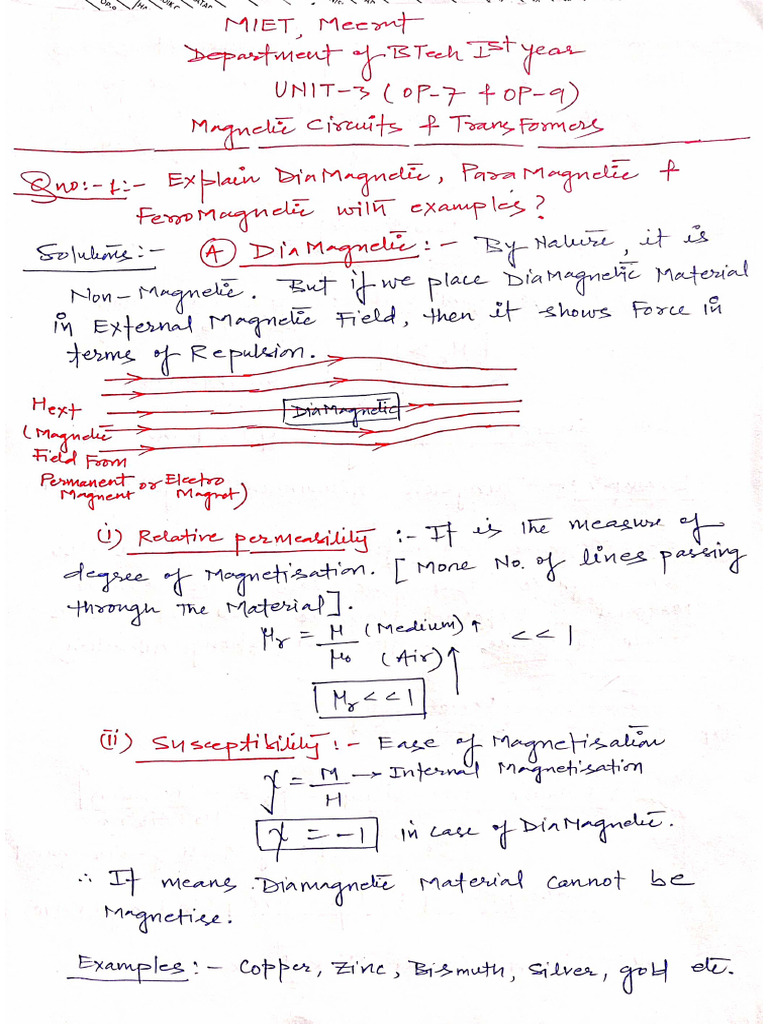 MIET, Meerut
Department of BTech Ist year
UNIT-3 (OP-7 & OP-9)
Magnetic Circuits & Transformers
Qno:-1:- Explain DiaMagnetic, ParaMagnetic &
FerroMagnetic with examples?
Solutions:- (A) DiaMagnetic:- By Nature, it is
Non-Magnetic. But if we place DiaMagnetic Material
in External Magnetic Field, then it shows Force in
terms of Repulsion.
Hext
DiaMagnetic
(Magnetic
Field From
Permanent or Electro
Magnent Magnet)
(i) Relative permeability :- It is the measure of
degree of Magnetisation. [More No. of lines passing
through The Material].
μr = μ (Medium)↑ << 1
μ0 (Air)
μr << 1
(ii) Susceptibility:- Ease of Magnetisation
χ = M → Internal Magnetisation
H
χ = -1 in case of DiaMagnetic.
∴ It means Diamagnetic Material cannot be
Magnetise.
Examples:- Copper, Zinc, Bismuth, Silver, gold etc.